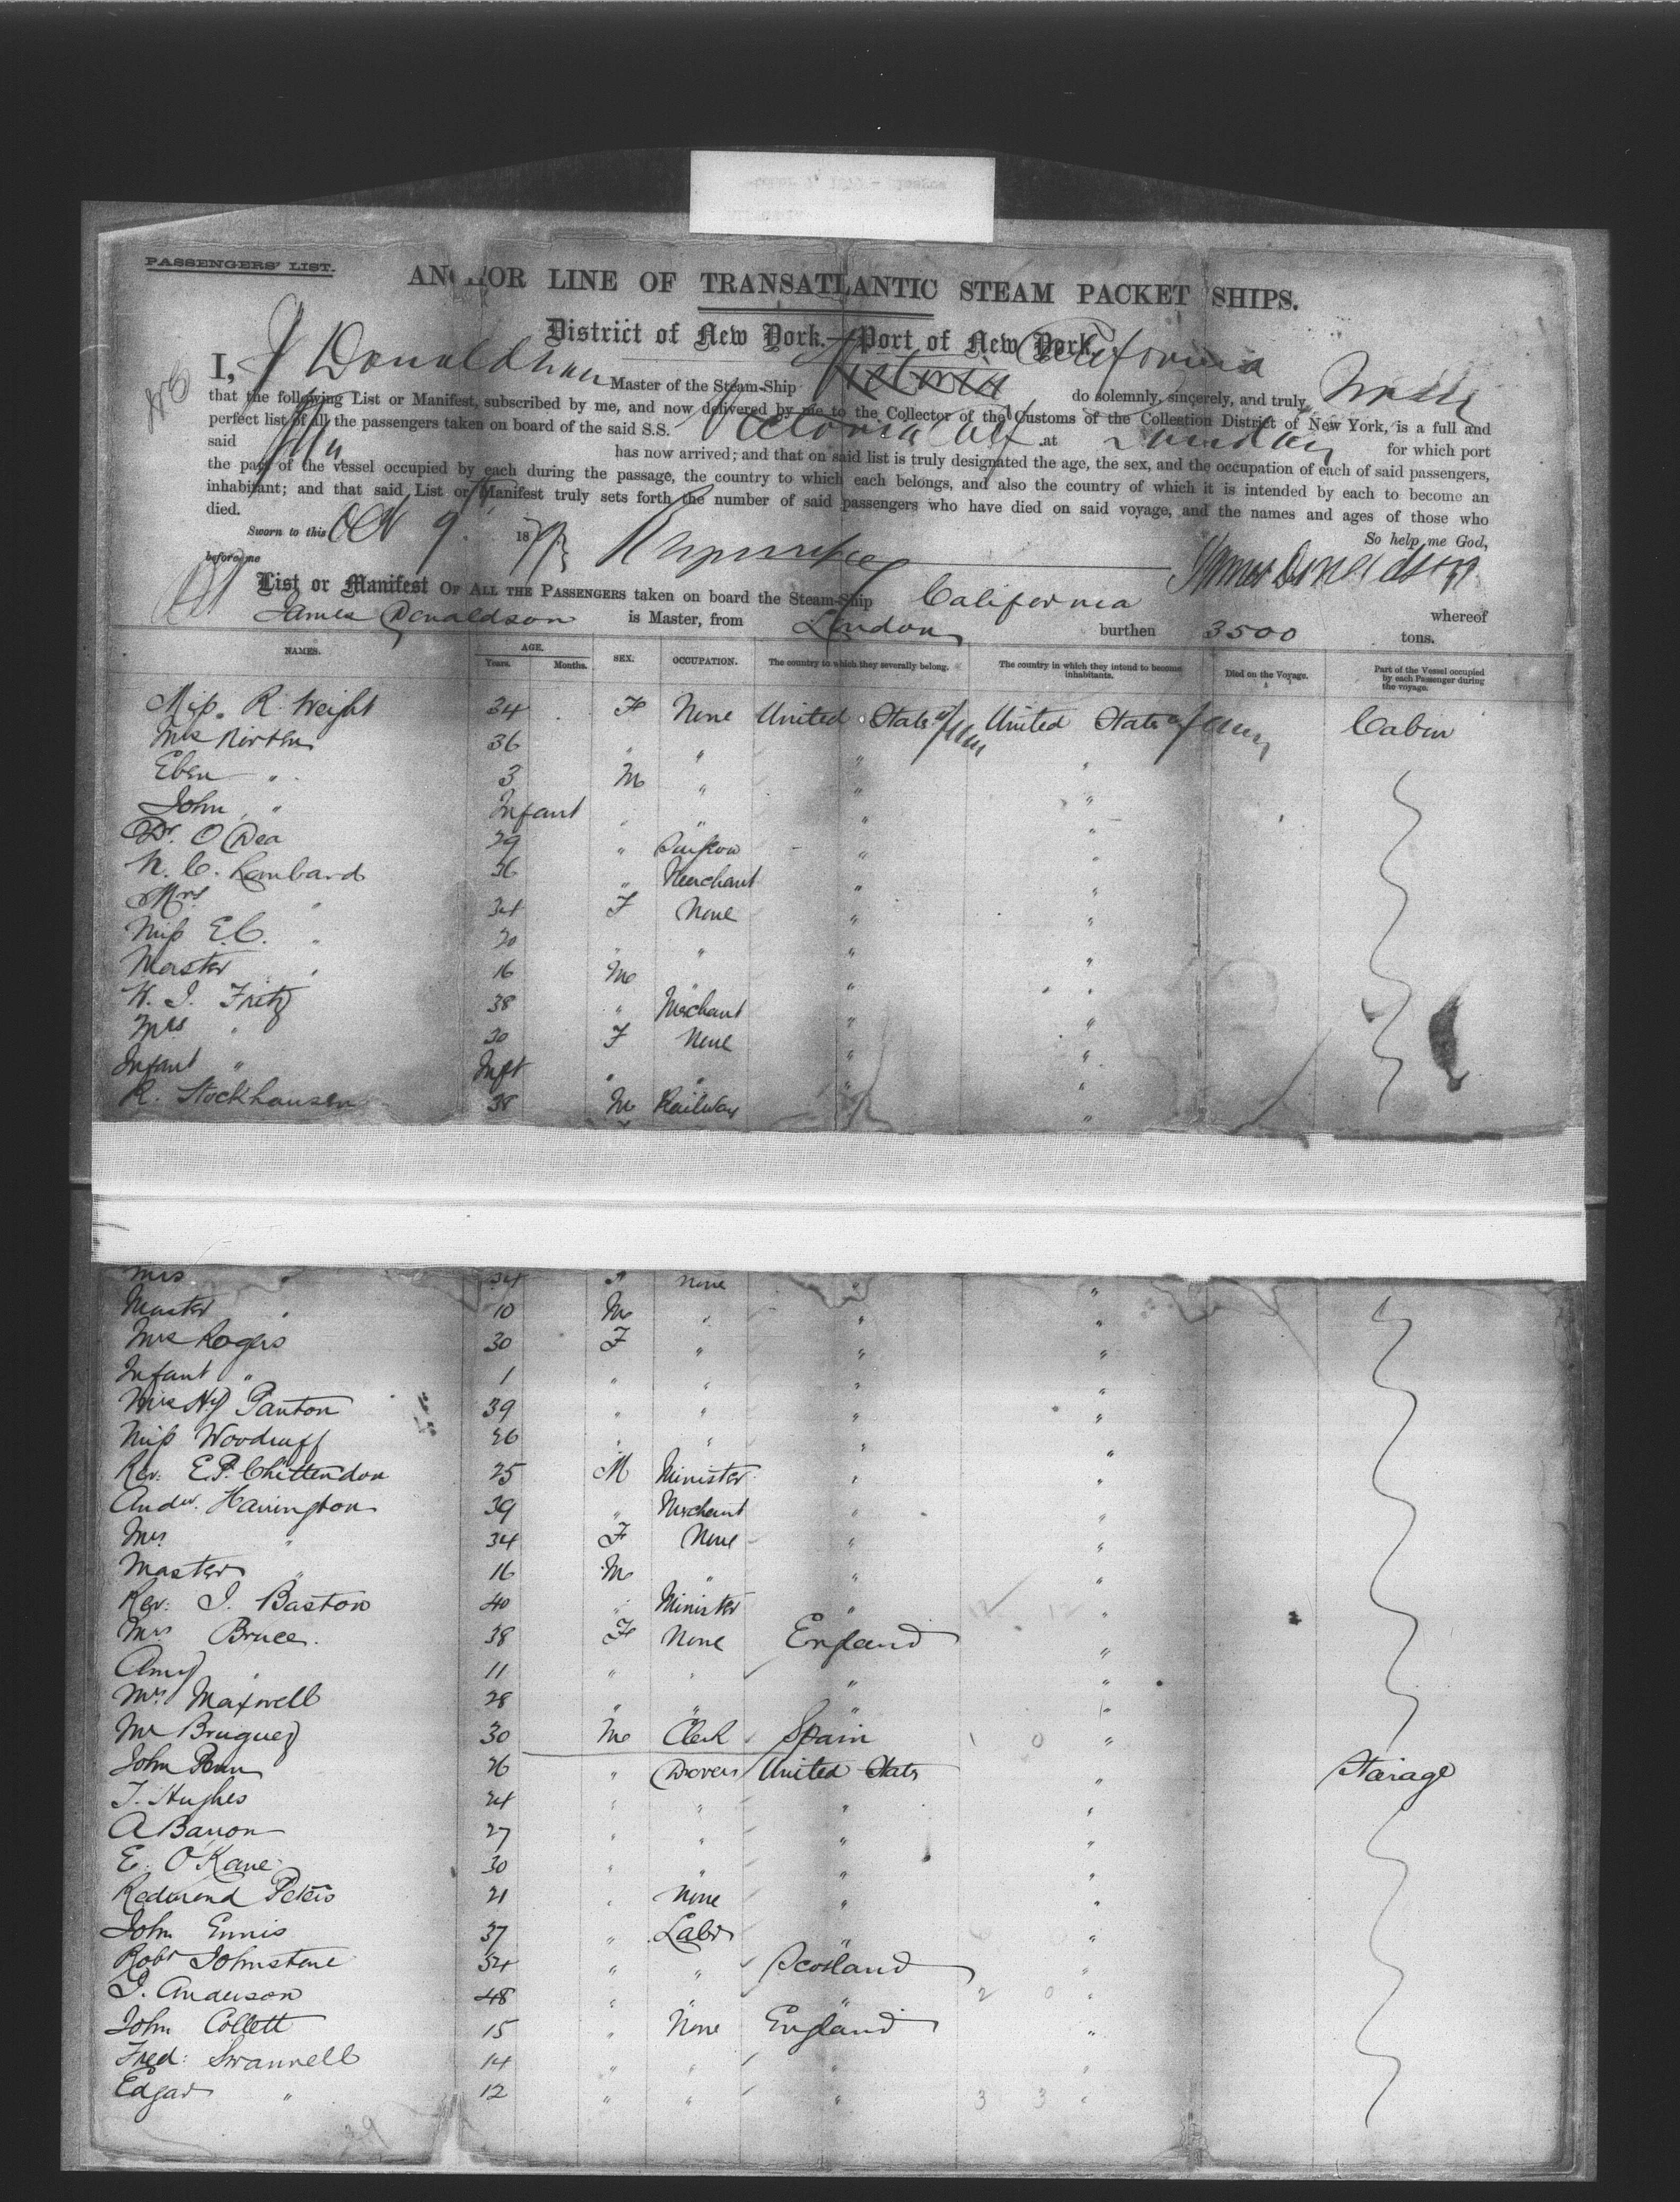 PASSENGERS' LIST.
ANCHOR LINE OF TRANSATLANTIC STEAM PACKET SHIPS.
District of New York.—Port of New York.
I, J Donaldson Master of the Steam-Ship Victoria California do solemnly, sincerely, and truly
that the following List or Manifest, subscribed by me, and now delivered by me to the Collector of the Customs of the Collection District of New York, is a full and
perfect list of all the passengers taken on board of the said S.S. Victoria at London for which port
said has now arrived; and that on said list is truly designated the age, the sex, and the occupation of each of said passengers,
the part of the vessel occupied by each during the passage, the country to which each belongs, and also the country of which it is intended by each to become an
inhabitant; and that said List or Manifest truly sets forth the number of said passengers who have died on said voyage, and the names and ages of those who
died. So help me God,
Sworn to this Oct 9 18
before me James Donaldson
List or Manifest OF ALL THE PASSENGERS taken on board the Steam-Ship California whereof
James Donaldson is Master, from London burthen 3500 tons.
NAMES. AGE. Years. Months. SEX. OCCUPATION. The country to which they severally belong. The country in which they intend to become inhabitants. Died on the Voyage. Part of the Vessel occupied by each Passenger during the voyage.
Miss R. Weight 34 F None United States of Am United States of Am Cabin
Mrs 36 " " " "
Eben " 3 M " " "
John " Infant " " " "
Dr. O'Dea 29 " Surgeon " "
N. C. Lombard 36 " Merchant " "
Mrs " 34 F None " "
Miss E.C. " 20 " " " "
Master " 16 M " " "
W. J. Fritz 38 " Merchant " "
Mrs " 30 F None " "
Infant " Inft " " " "
R. Stockhausen 38 M Railway " "
Mrs " 34 F None " "
Master " 10 M " " "
Mrs Rogers 30 F " " "
Infant " 1 " " " "
Mrs Hy Panton 39 " " " "
Miss Woodruff 26 " " " "
Rev. E.P. Chittendon 25 M Minister " "
Andw. Harrington 39 " Merchant " "
Mrs " 34 F None " "
Master " 16 M " " "
Rev. J. Baston 40 " Minister " "
Mrs Bruce. 38 F None England "
Amy " 11 " " " "
Mrs Maxwell 28 " " " "
Mr Bruguez 30 M Clerk Spain 1 0 "
John 26 " Drover United States " Stairage
T. Hughes 24 " " " "
A Barron 27 " " " "
E. O'Kane 30 " " " "
Redmond Peters 21 " None " "
John Ennis 37 " Labr " "
Robt Johnstone 54 " " Scotland "
J. Anderson 48 " " " 2 0 "
John Collett 15 " None England "
Fred: Swannell 14 " " " "
Edgar " 12 " " " 3 3 "
29